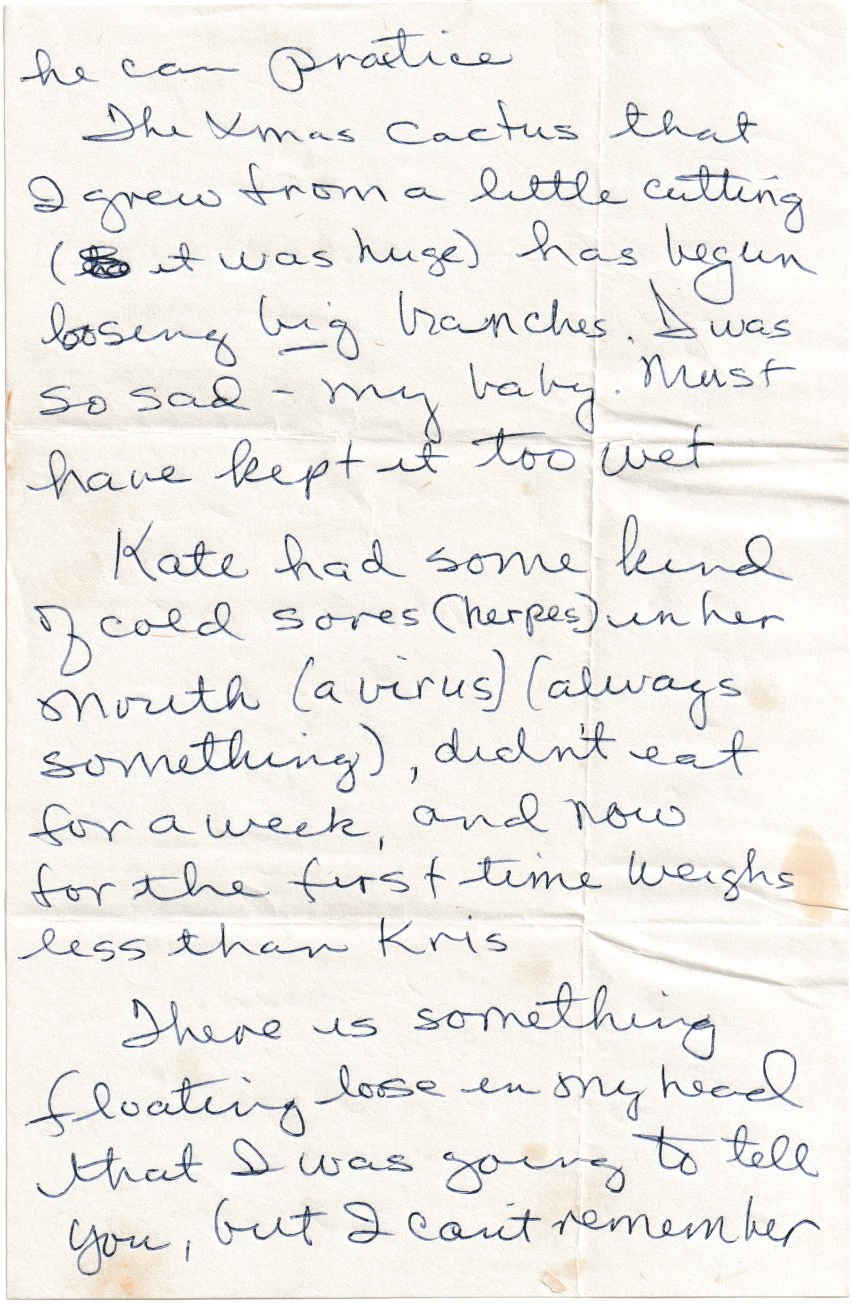 he can practice
The Xmas cactus that
I grew from a little cutting
( it was huge) has begun
loosing big branches. I was
so sad - my baby. Must
have kept it too wet
Kate had some kind
of cold sores (herpes) in her
mouth (a virus) (always
something), didn't eat
for a week, and now
for the first time weighs
less than Kris
There is something
floating loose in my head
that I was going to tell
you, but I can't remember